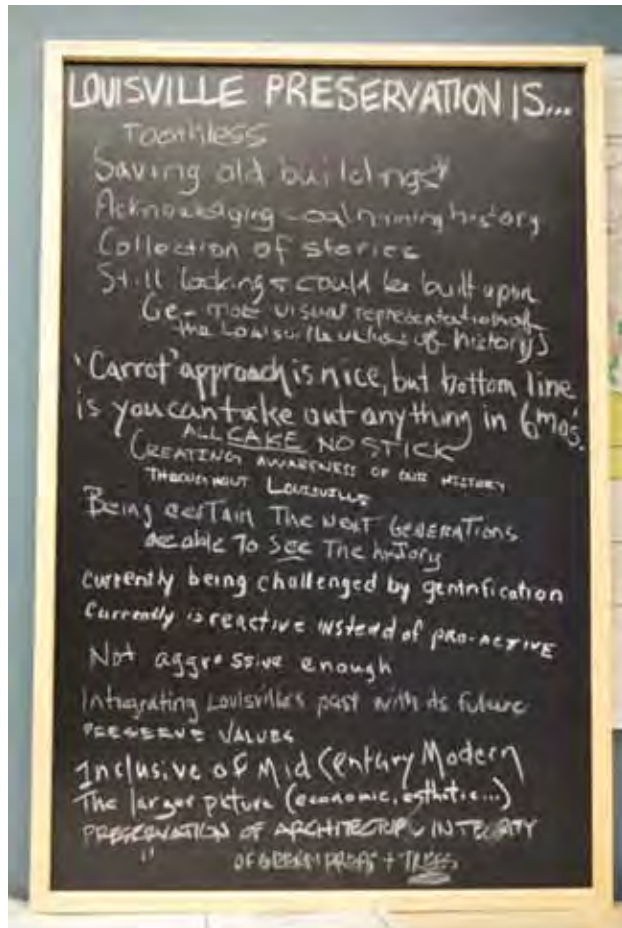 LOUISVILLE PRESERVATION IS...
Toothless
Saving old buildings*
Acknowledging coal mining history
Collection of stories
Still lacking & could be built upon
(ie- more visual representation of
the Louisville values of history)
"Carrot" approach is nice, but bottom line
is you can take out anything in 6 mos.
ALL CAKE NO STICK
CREATING AWARENESS OF OUR HISTORY
THROUGHOUT LOUISVILLE
Being certain The next Generations
are able To See The history
Currently being challenged by gentrification
Currently is reactive instead of PRO-ACTIVE
Not aggressive enough
Integrating Louisville's past with its future
PRESERVE VALUES
Inclusive of Mid Century Modern
The larger picture (economic, esthetic...)
PRESERVATION OF ARCHITECTURE INTEGRITY
" OF GREEN + TREES